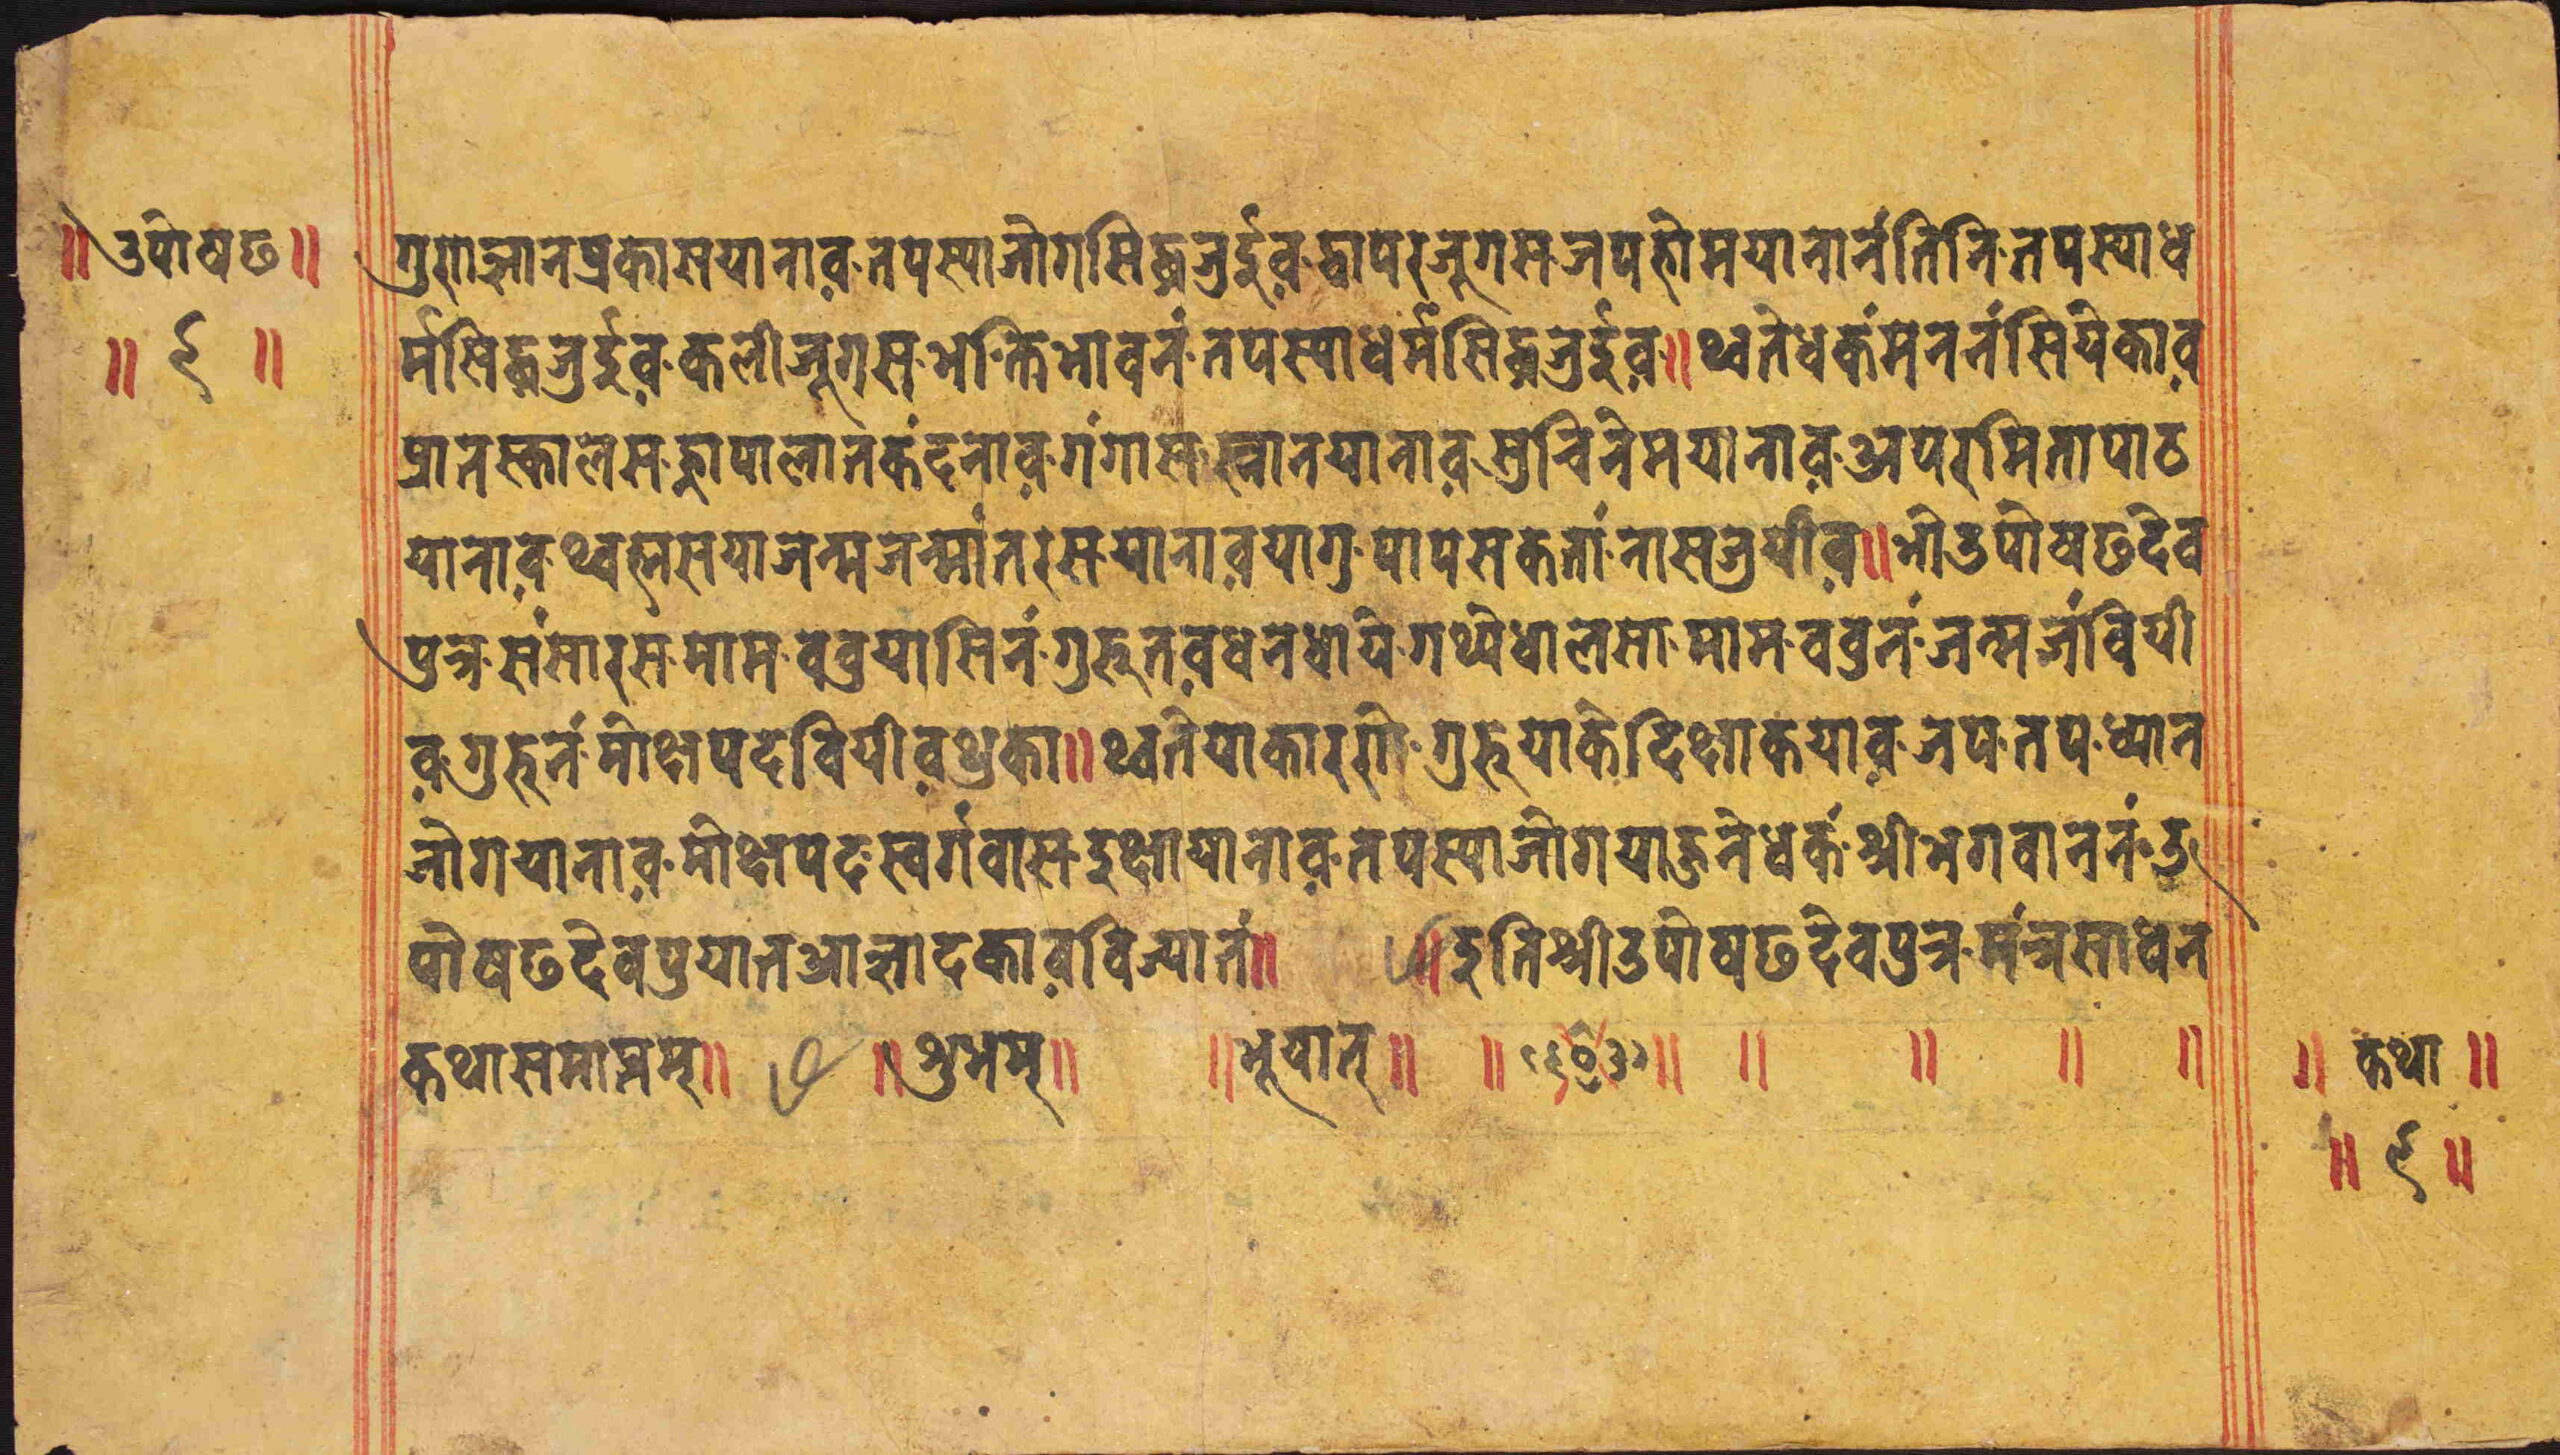 ॥ उपोषछ॥
॥ ९ ॥
गुणोज्ञानप्रकासयानाव तपस्याजोगसिद्धजुईव द्वापरजूगस जपहोमयानानंतिनि तपस्याध
र्मसिद्धजुईव कलीजूगस भक्तिभावनं तपस्याधर्मसिद्धजुईव॥थ्वतेधकंमननंसियेकाव
प्रातस्कालेस ह्नापालातकंदनाव गंगास स्नानयानाव सुचिनेमयानाव अपरमितापाठ
यानाव थ्वह्मसयाजन्मजन्मांतरस यानावयागु पापसकतां नासजुयीव॥भोउपोषछदेव
पुत्र संसारस मामववुयासिनं गुरूतवधनधाये गथ्येधालसा मामववुनं जन्मजंवियी
व गुरूनं मोक्षपदवियीवथुका॥थ्वतेयाकारणे गुरूयाकेदिक्षाकयाव जप तप ध्यान
जोगयानाव मोक्षपद स्वर्गवास इक्षायानाव तपस्याजोगयाहुनेधकं श्रीभगवाननं उ
पोषछदेवपुयातआज्ञादकावविज्यातं॥ ॥इतिश्रीउपोषछदेवपुत्र मंत्रसाधन
कथासमाप्तम्॥ ॥शुभम्॥ ॥भूयात्॥ ॥ ॥ ॥ ॥ ॥ ॥
॥ कथा ॥
॥ ९ ॥